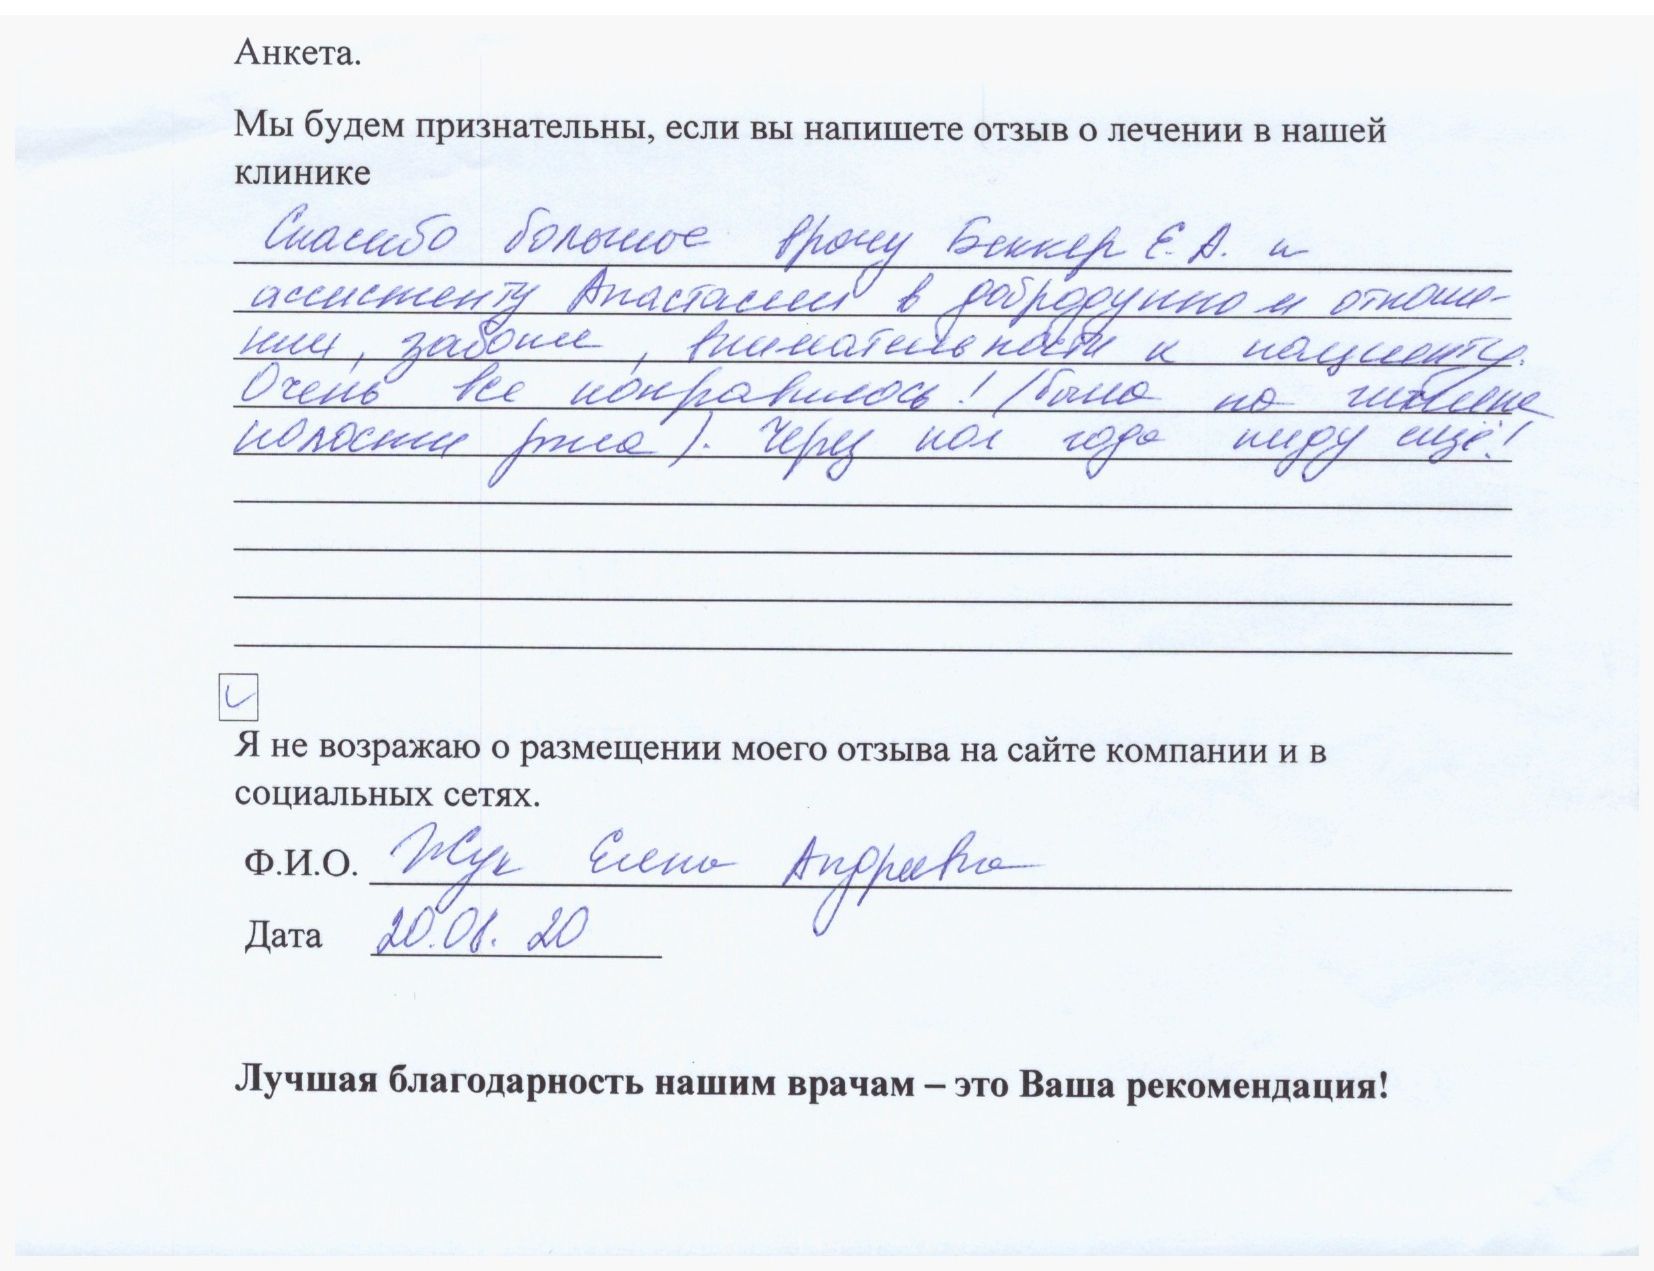 Анкета.
Мы будем признательны, если вы напишете отзыв о лечении в нашей
клинике
Спасибо большое врачу Беккер Е.А. и
ассистенту Анастасии в добродушном отноше-
нии, заботе, внимательности к пациенту.
Очень все понравилось! (была на гигиене
полости рта). Через пол года приду ещё!
Я не возражаю о размещении моего отзыва на сайте компании и в
социальных сетях.
Ф.И.О. Жук Елена Андреевна
Дата 20.01. 20
Лучшая благодарность нашим врачам – это Ваша рекомендация!